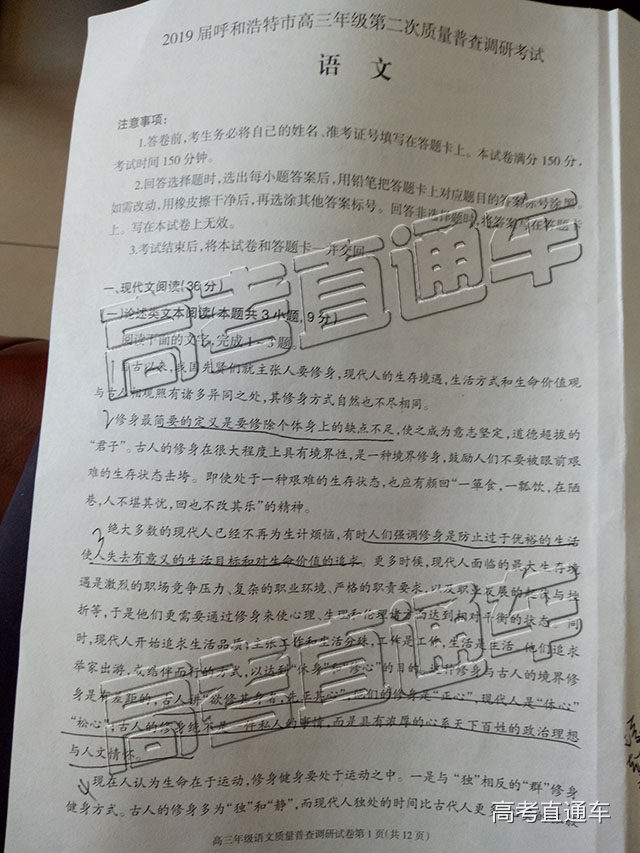 2019 届呼和浩特市高三年级第二次质量普查调研考试
语 文
注意事项:
1.答卷前,考生务必将自己的姓名、准考证号填写在答题卡上。本试卷满分150分,
考试时间150分钟。
2.回答选择题时,选出每小题答案后,用铅笔把答题卡上对应题目的答案标号涂黑。
如需改动,用橡皮擦干净后,再选涂其他答案标号。回答非选择题时,将答案写在答题卡
上。写在本试卷上无效。
3.考试结束后,将本试卷和答题卡一并交回。
一、现代文阅读(36分)
(一)论述类文本阅读(本题共3小题,9分)
阅读下面的文字,完成1~3题。
自古以来,我国先贤们就主张人要修身,现代人的生存境遇,生活方式和生命价值观
与古人相观照有诸多异同之处,其修身方式自然也不尽相同。
修身最简要的定义是要修除个体身上的缺点不足,使之成为意志坚定,道德超拔的
“君子”。古人的修身在很大程度上具有境界性,是一种境界修身,鼓励人们不要被眼前艰
难的生存状态击垮。即使处于一种艰难的生存状态,也应有颜回“一箪食,一瓢饮,在陋
巷,人不堪其忧,回也不改其乐”的精神。
绝大多数的现代人已经不再为生计烦恼,有时人们强调修身是防止过于优裕的生活
使人失去有意义的生活目标和对生命价值的追求。更多时候,现代人面临的最大生存境
遇是激烈的职场竞争压力、复杂的职业环境、严格的职责要求,以及职业发展的 与挫
折等,于是他们更需要通过修身来使心理、生理和伦理诸方面达到相对平衡的状态。同
时,现代人开始追求生活品质,主张工作和生活分殊,工作是工作,生活是生活。他们追求
举家出游,或结伴而行的方式,以达到“休身”和“修心”的目的。这种修身与古人的境界修
身是有差距的,古人讲“欲修其身者,先正其心”,他们的修身是“正心”,现代人是“体心”
“松心”;古人的修身绝不是一件私人的事情,而是具有浓厚的心系天下百姓的政治理想
与人文情怀。
现在人认为生命在于运动,修身健身要处于运动之中。一是与“独”相反的“群”修身
健身方式。古人的修身多为“独”和“静”,而现代人独处的时间比古代人更
高三年级语文质量普查调研试卷第1页(共12页)
高考直通车
高考直通车
高考直通车